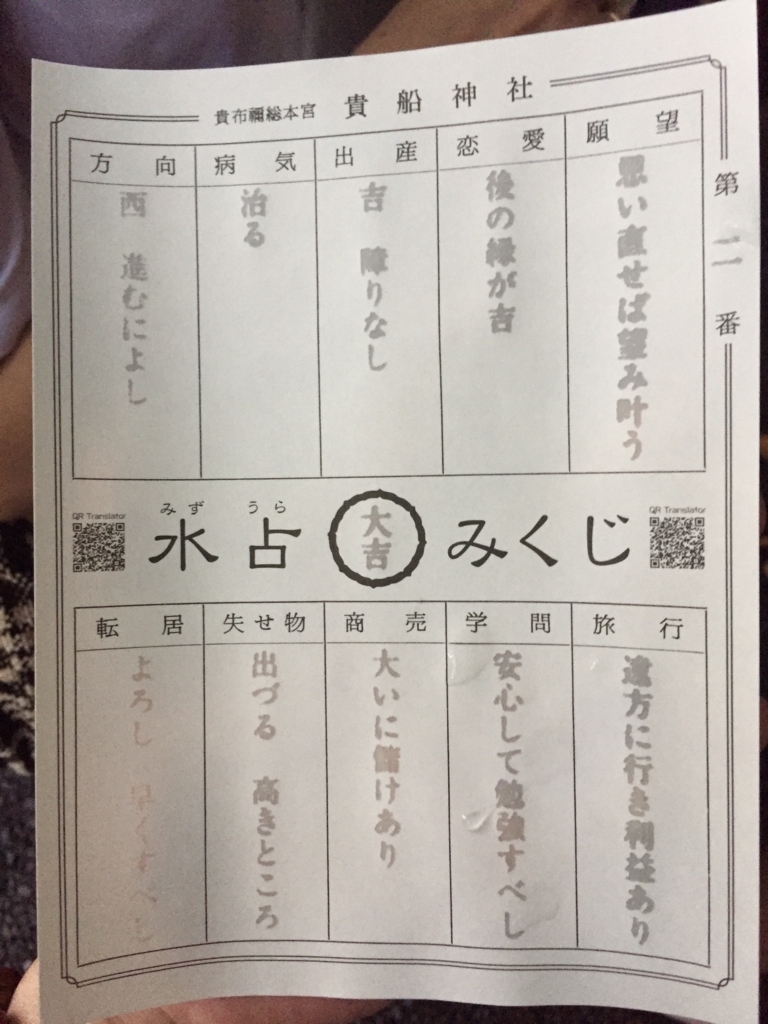 貴布禰総本宮 貴船神社
第二番
願望
思い直せば望み叶う
恋愛
後の縁が吉
出産
吉 障りなし
病気
治る
方向
西 進むによし
QR Translator
みずうら
水占
大吉
みくじ
QR Translator
旅行
遠方に行き利益あり
学問
安心して勉強すべし
商売
大いに儲けあり
失せ物
出づる 高きところ
転居
よろし 早くすべし